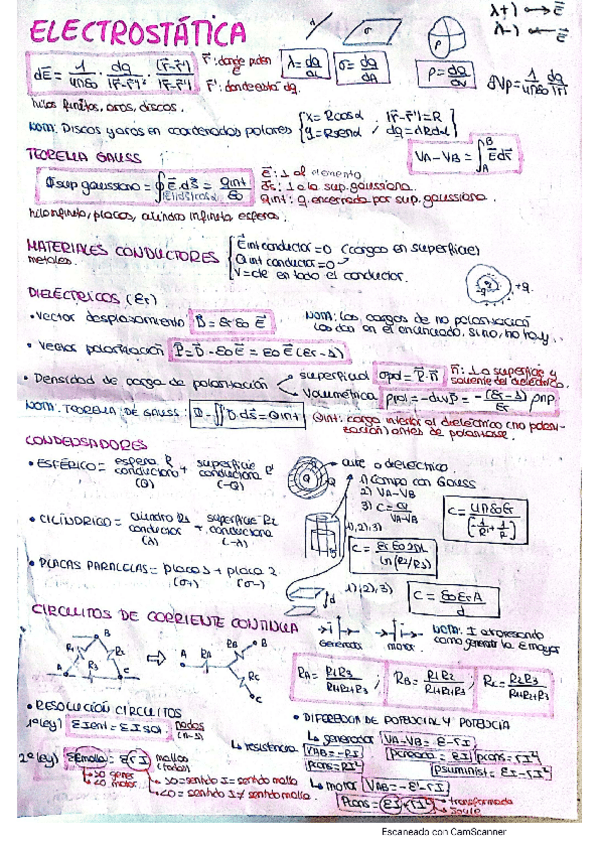 ELECTROSTÁTICA
λ+) ⟶ E⃗
λ-) ⟵ E⃗
dE⃗ = 1/4πε₀ · dq/|r⃗-r⃗'|² · (r⃗-r⃗')/|r⃗-r⃗'|
r⃗: donde piden E⃗
r⃗': donde está dq.
λ = dq/dL
σ = dq/dA
ρ = dq/dV
dVp = 1/4πε₀ dq/|r|
hilos finitos, aros, discos.
NOTA: Discos y aros en coordenadas polares { x = Rcosα , |r⃗-r⃗'| = R
y = Rsenα , dq = λRdα
VA-VB = ∫ E⃗dr⃗
TEOREMA GAUSS
Φsup gaussiana = ∮ E⃗ · dS⃗ = qint/ε₀
E⃗: ⊥ al elemento
dS⃗: ⊥ a la sup. gaussiana.
qint: q encerrada por sup. gaussiana.
hilo infinito, placas, cilindro infinito, esfera.
MATERIALES CONDUCTORES
metales.
E⃗ int conductor = 0 (cargas en superficie)
Q int conductor = 0
V = cte en todo el conductor.
-q
+q
DIELÉCTRICOS (εr)
• Vector desplazamiento D⃗ = εr ε₀ E⃗
NOTA: Las cargas de no polarización
las dan en el enunciado, si no, no hay..
• Vector polarización P⃗ = D⃗ - ε₀E⃗ = ε₀ E⃗ (εr - 1)
• Densidad de carga de polarización
superficial σpol = P⃗ · n⃗
n⃗: ⊥ a superficie y
saliente del dieléctrico.
volumétrica ρpol = -div P⃗ = -(εr-1)/εr ρnp
NOTA: TEOREMA DE GAUSS: Φ = ∬ D⃗ dS⃗ = Qint
Qint: carga interior al dieléctrico (no polari-
zación) antes de polarizarse.
CONDENSADORES
• ESFÉRICO = esfera R conductora (Q) + superficie R' conductora (-Q)
aire o dieléctrico.
1) Campo con Gauss
2) VA-VB
3) C = Q/VA-VB
• CILÍNDRICO = cilindro R1 conductor (λ) + superficie R2 conductora (-λ)
1), 2), 3)
C = εr ε₀ 2πL / ln(R2/R1)
• PLACAS PARALELAS = placa 1 (σ+) + placa 2 (σ-)
d
1), 2), 3)
C = ε₀ εr A / d
CIRCUITOS DE CORRIENTE CONTINUA
Generador
motor
R1
R2
R3
A
B
C
RA
RB
RC
RA = R1R3/R1+R2+R3 ; RB = R1R2/R1+R2+R3 ; RC = R2R3/R1+R2+R3
• RESOLUCIÓN CIRCUITOS
1ª ley) ΣIent = ΣIsal nodos (n-1)
2ª ley) Σεmalla = ΣrI mallas (todas)
>0 gener
<0 motor
>0 = sentido I = sentido malla
<0 = sentido I ≠ sentido malla.
• DIFERENCIA DE POTENCIAL Y POTENCIA
resistencia VAB = -RI
Pcons = RI²
generador VA-VB = ε-rI
Pcreada = εI
Pcons = rI²
Psuminist = εI-rI²
motor VAB = -ε'-rI
Pcons = εI + rI²
transformada
Joule
Escaneado con CamScanner